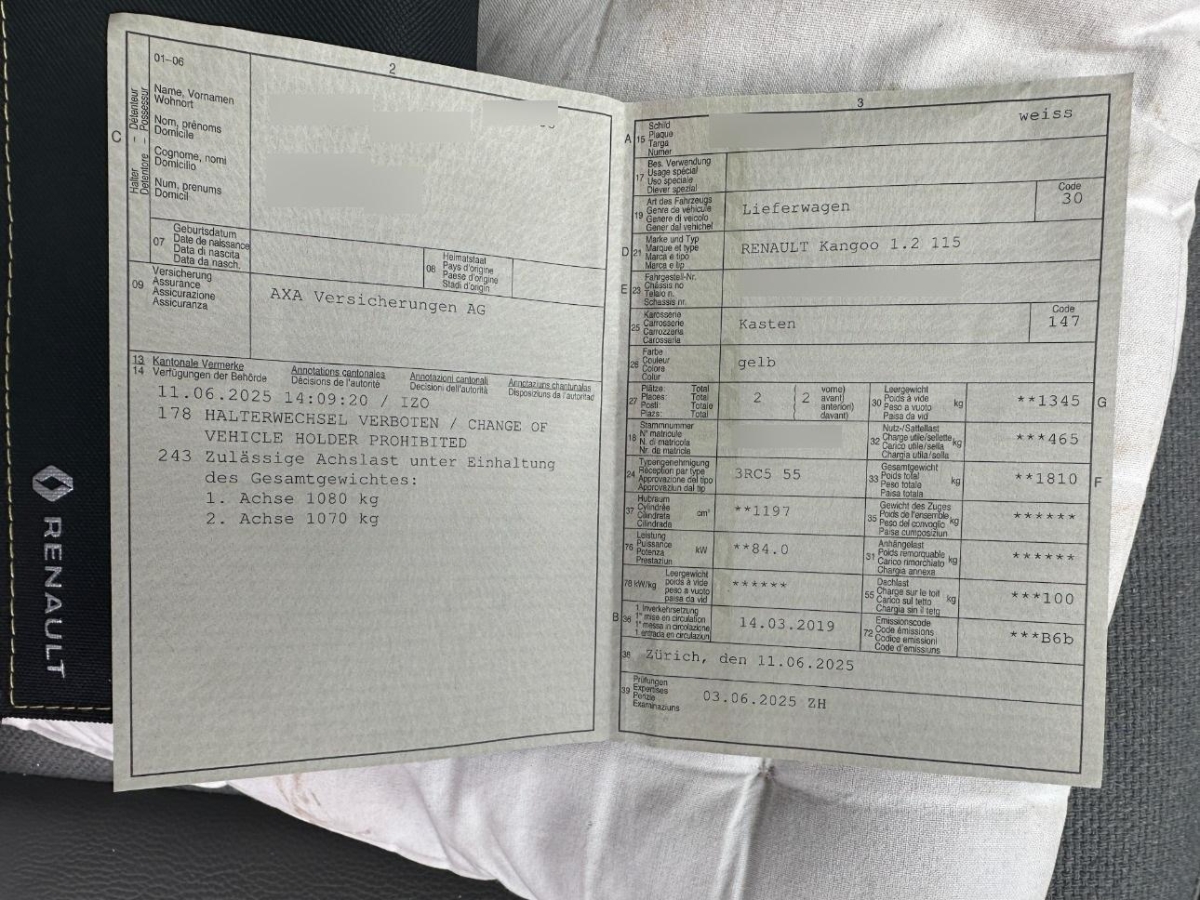 RENAULT
2
01-06
C
Halter – Detenteur
Detentore – Possessur
Name, Vornamen
Wohnort
Nom, prénoms
Domicile
Cognome, nomi
Domicilio
Num, prenums
Domicil
07
Geburtsdatum
Date de naissance
Data di nascita
Data da nasch.
08
Heimatstaat
Pays d'origine
Paese d'origine
Stadi d'origin
09
Versicherung
Assurance
Assicurazione
Assicuranza
AXA Versicherungen AG
13
14
Kantonale Vermerke
Verfügungen der Behörde
Annotations cantonales
Décisions de l'autorité
Annotazioni cantonali
Decisioni dell'autorità
Annotaziuns chantunalas
Disposiziuns da l'autoritad
11.06.2025 14:09:20 / IZO
178 HALTERWECHSEL VERBOTEN / CHANGE OF
VEHICLE HOLDER PROHIBITED
243 Zulässige Achslast unter Einhaltung
des Gesamtgewichtes:
1. Achse 1080 kg
2. Achse 1070 kg
3
A 15
Schild
Plaque
Targa
Numer
weiss
17
Bes. Verwendung
Usage spécial
Uso speciale
Diever spezial
19
Art des Fahrzeugs
Genre de véhicule
Genere di veicolo
Gener dal vehichel
Lieferwagen
Code
30
D 21
Marke und Typ
Marque et type
Marca e tipo
Marca e tip
RENAULT Kangoo 1.2 115
E 23
Fahrgestell-Nr.
Châssis no
Telaio n.
Schassis nr.
25
Karosserie
Carrosserie
Carrozzeria
Carossaria
Kasten
Code
147
26
Farbe
Couleur
Colore
Colur
gelb
27
Plätze: Total
Places: Total
Posti: Totale
Plazs: Total
2
( 2
vorne)
avant)
anteriori)
davant)
30
Leergewicht
Poids à vide
Peso a vuoto
Paisa da vid
kg
**1345
G
18
Stammnummer
N° matricule
N. di matricola
Nr. da matricla
32
Nutz-/Sattellast
Charge utile/sellette
Carico utile/sella
Chargia utila/sella
kg
***465
24
Typengenehmigung
Réception par type
Approvazione del tipo
Approvaziun dal tip
3RC5 55
33
Gesamtgewicht
Poids total
Peso totale
Paisa totala
kg
**1810
F
37
Hubraum
Cylindrée
Cilindrata
Cilindrada
cm³
**1197
35
Gewicht des Zuges
Poids de l'ensemble
Peso del convoglio
Paisa cumposiziun
kg
******
76
Leistung
Puissance
Potenza
Prestaziun
kW
**84.0
31
Anhängelast
Poids remorquable
Carico rimorchiato
Chargia annexa
kg
******
78 kW/kg
Leergewicht
poids à vide
peso a vuoto
paisa da vid
******
55
Dachlast
Charge sur le toit
Carico sul tetto
Chargia sin il tetg
kg
***100
B 36
1. Inverkehrsetzung
1re mise en circulation
1a messa in circolazione
1. entrada en circulaziun
14.03.2019
72
Emissionscode
Code émissions
Codice emissioni
Code d'emissiuns
***B6b
38
Zürich, den 11.06.2025
39
Prüfungen
Expertises
Perizie
Examinaziuns
03.06.2025 ZH